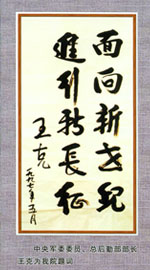 面向新世纪
进行新长征
王克
一九九七年五月
中央军委委员、总后勤部部长
王克为我院题词